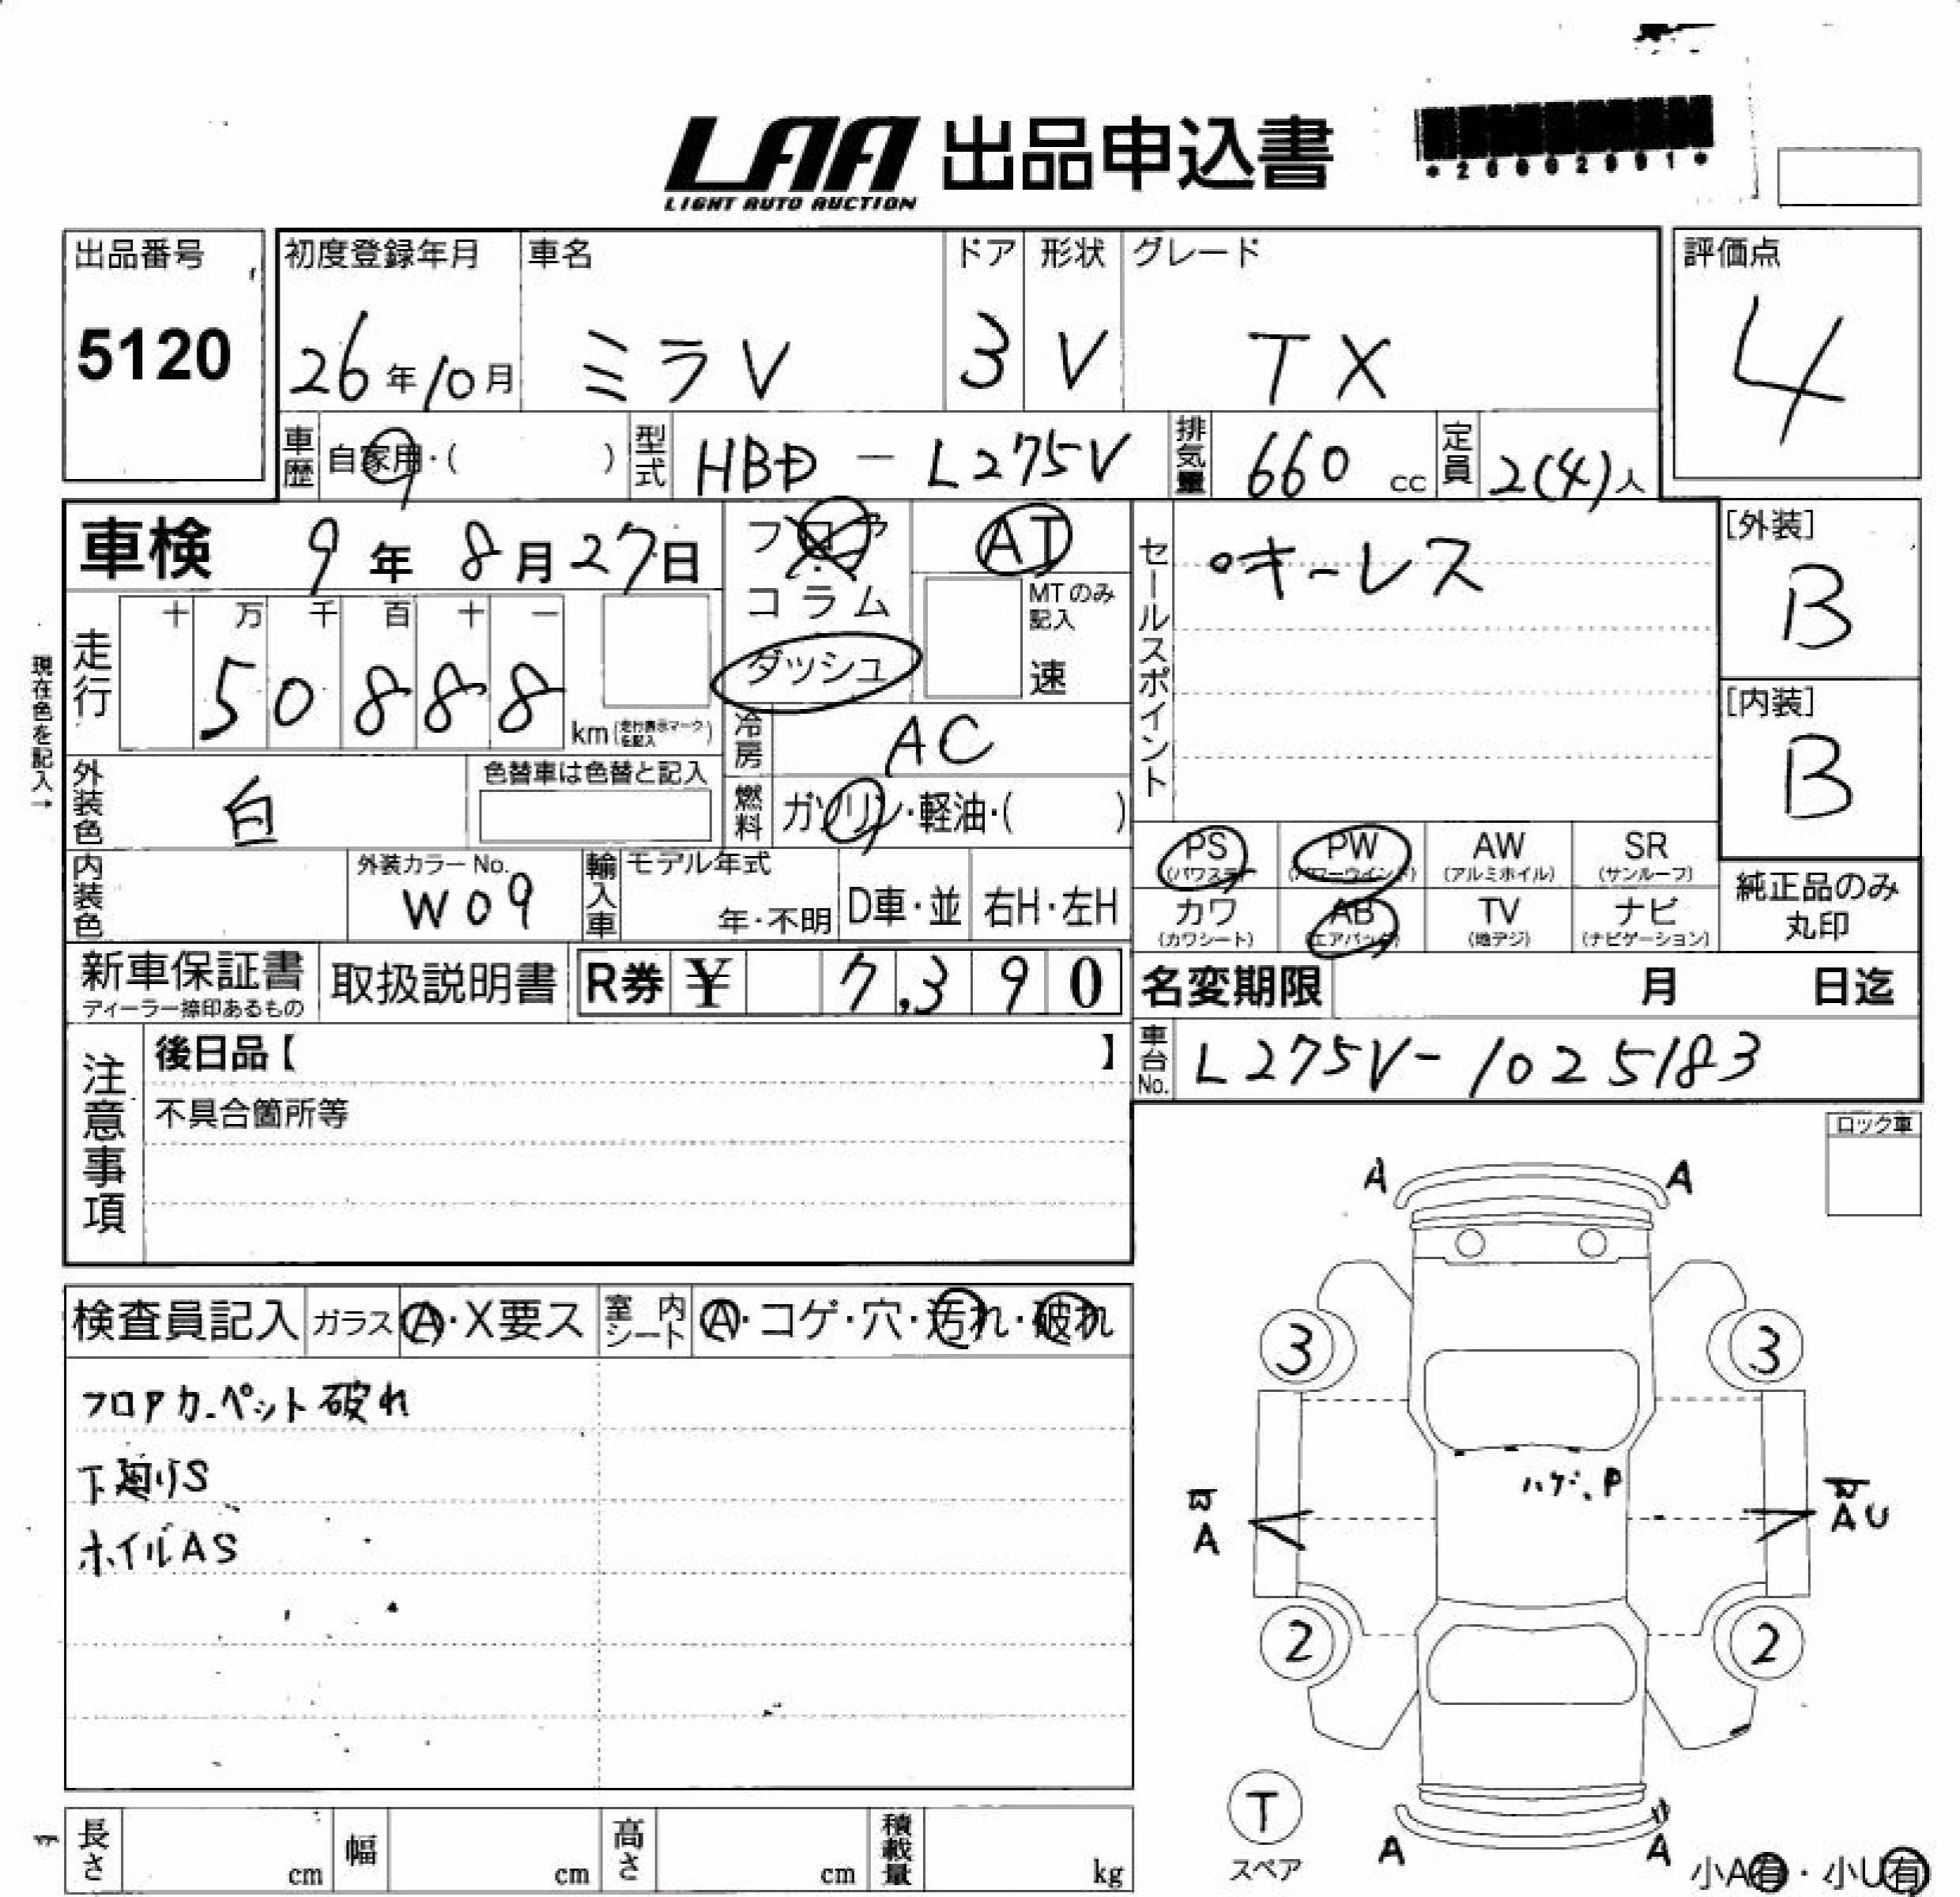 LAA 出品申込書
LIGHT AUTO AUCTION
*26002991*
出品番号
5120
初度登録年月 車名 ドア 形状 グレード
26年10月 ミラV 3 V TX
評価点
4
車歴 自家用・( ) 型式 HBD-L275V 排気量 660 cc 定員 2(4)人
車検 9年8月27日
フロア
コラム
ダッシュ
AT
MTのみ記入
速
セールスポイント
・キーレス
[外装]
B
[内装]
B
現在色を記入→
走行 十 万 千 百 十 一
5 0 8 8 8
km(走行表示マークを記入)
冷房 AC
外装色 白 色替車は色替と記入
燃料 ガソリン・軽油・( )
内装色 外装カラーNo.
W09
輸入車 モデル年式
年・不明 D車・並 右H・左H
PS (パワステ)
PW (パワーウインド)
AW (アルミホイル)
SR (サンルーフ)
カワ (カワシート)
AB (エアバッグ)
TV (地デジ)
ナビ (ナビゲーション)
純正品のみ
丸印
新車保証書
ディーラー捺印あるもの
取扱説明書 R券 ¥ 7,390
名変期限 月 日迄
車台No. L275V-1025183
注意事項
後日品【 】
不具合箇所等
ロック車
検査員記入 ガラス A・X要ス 室内シート A・コゲ・穴・汚れ・破れ
フロアカーペット破れ
下廻りS
ホイルAS
A A
3 3
ハゲ、P
A
AU
2 2
T
スペア
A A
小A有・小U有
長さ cm 幅 cm 高さ cm 積載量 kg